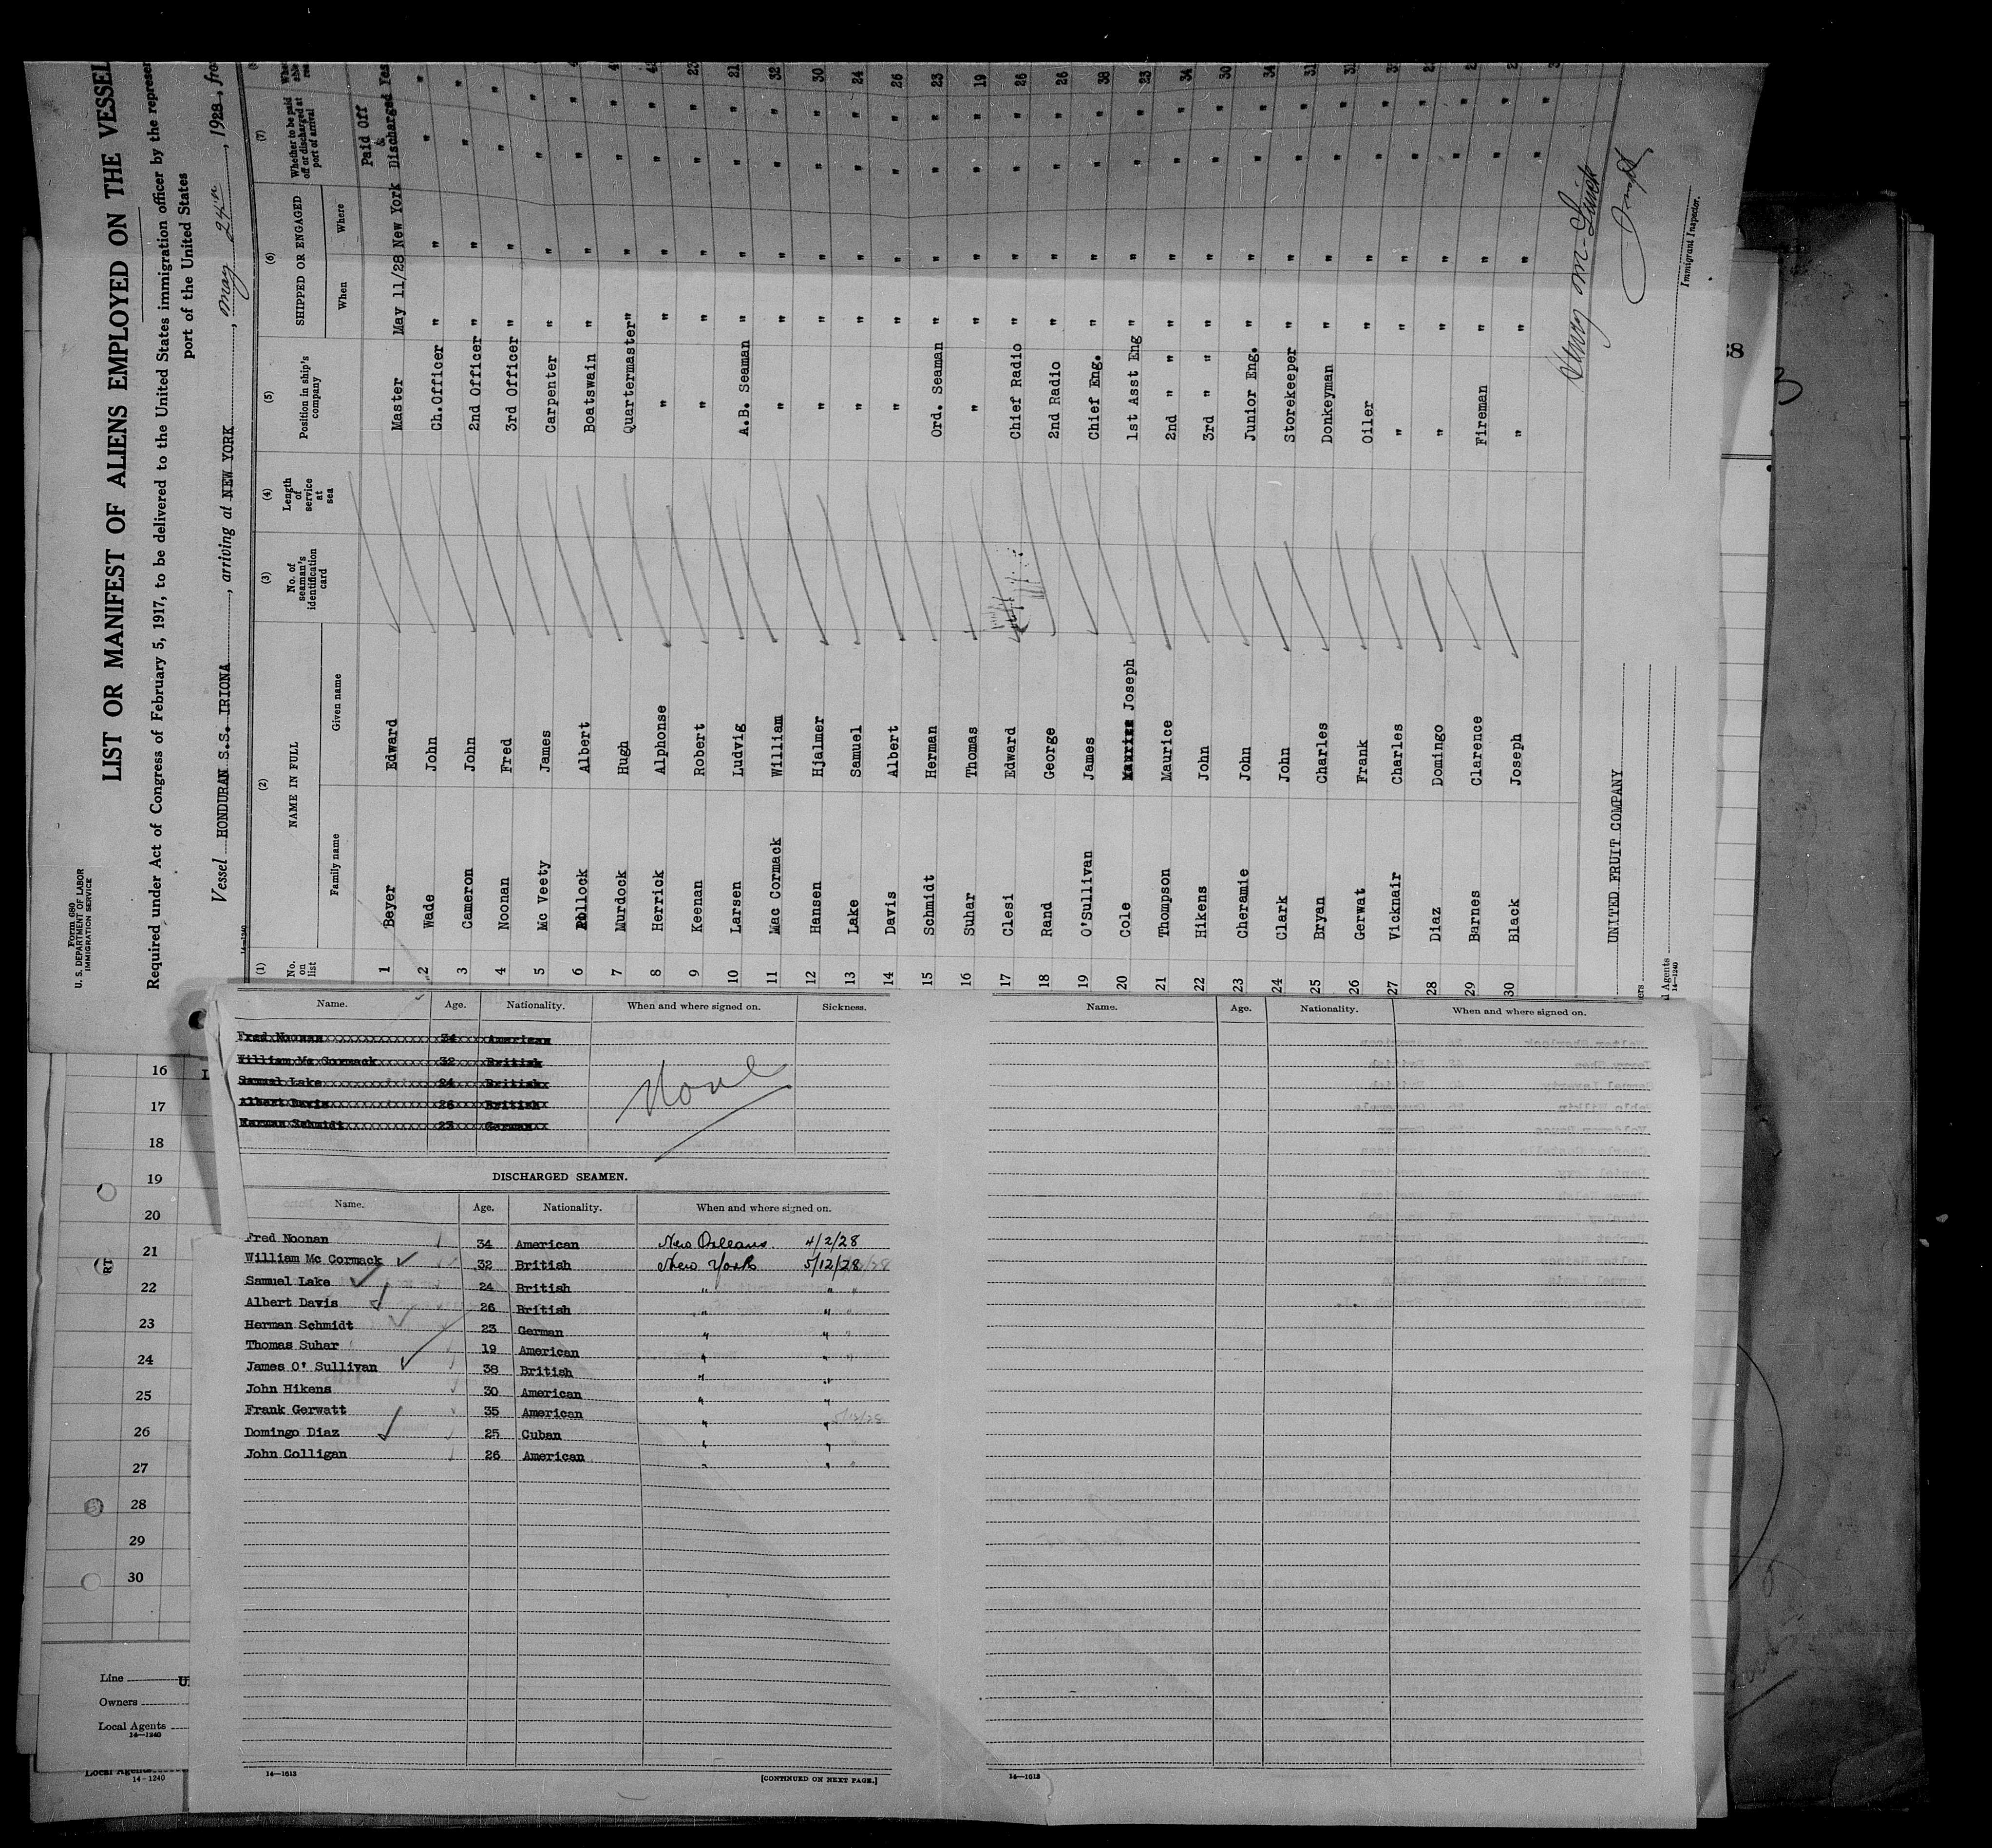 Form 680
U. S. DEPARTMENT OF LABOR
IMMIGRATION SERVICE
LIST OR MANIFEST OF ALIENS EMPLOYED ON THE VESSEL
Required under Act of Congress of February 5, 1917, to be delivered to the United States immigration officer by the represen
port of the United States
Vessel HONDURAN S.S. IRIONA, arriving at NEW YORK, May 24th, 1928, from
14—1240
(1) (2) (3) (4) (5) (6) (7)
No. on list NAME IN FULL No. of seaman's identification card Length of service at sea Position in ship's company SHIPPED OR ENGAGED Whether to be paid off or discharged at port of arrival
Family name Given name When Where
Paid Off &
1 Beyer Edward Master May 11/28 New York Discharged Yes
2 Wade John Ch.Officer " " " "
3 Cameron John 2nd Officer " " " "
4 Noonan Fred 3rd Officer " " " "
5 Mc Veety James Carpenter " " " "
6 Pollock Albert Boatswain " " " "
7 Murdock Hugh Quartermaster " " " "
8 Herrick Alphonse " " " " "
9 Keenan Robert " " " " " 23
10 Larsen Ludvig A.B. Seaman " " " " 21
11 Mac Cormack William " " " " " 32
12 Hansen Hjalmer " " " " " 30
13 Lake Samuel " " " " " 24
14 Davis Albert " " " " " 26
15 Schmidt Herman Ord. Seaman " " " " 23
16 Suhar Thomas " " " " " 19
17 Clesi Edward Chief Radio " " " " 26
18 Rand George 2nd Radio " " " " 26
19 O'Sullivan James Chief Eng. " " " " 38
20 Cole Maurice Joseph 1st Asst Eng " " " " 23
21 Thompson Maurice 2nd " " " " " " 34
22 Hikens John 3rd " " " " " " 30
23 Cheramie John Junior Eng. " " " " 34
24 Clark John Storekeeper " " " "
25 Bryan Charles Donkeyman " " " "
26 Gerwat Frank Oiler " " " "
27 Vicknair Charles " " " " "
28 Diaz Domingo " " " " "
29 Barnes Clarence Fireman " " " "
30 Black Joseph " " " " "
UNITED FRUIT COMPANY
Immigrant Inspector.
ers
l Agents
14—1240
Name. Age. Nationality. When and where signed on. Sickness.
Fred Noonan 34 American
William Mc Cormack 32 British
Samuel Lake 24 British
Albert Davis 26 British
Herman Schmidt 23 German
None
DISCHARGED SEAMEN.
Name. Age. Nationality. When and where signed on.
Fred Noonan 34 American New Orleans 4/2/28
William Mc Cormack 32 British New York 5/12/28
Samuel Lake 24 British " " "
Albert Davis 26 British " " "
Herman Schmidt 23 German " " "
Thomas Suhar 19 American " " "
James O' Sullivan 38 British " "
John Hikens 30 American " "
Frank Gerwatt 35 American " " 5/12/28
Domingo Diaz 25 Cuban " "
John Colligan 26 American " " "
14—1613
[CONTINUED ON NEXT PAGE.]
Name. Age. Nationality. When and where signed on.
14—1613
16
17
18
19
20
21
22
23
24
25
26
27
28
29
30
RT
Line U
Owners
Local Agents
14—1240
Local Agents
14-1240